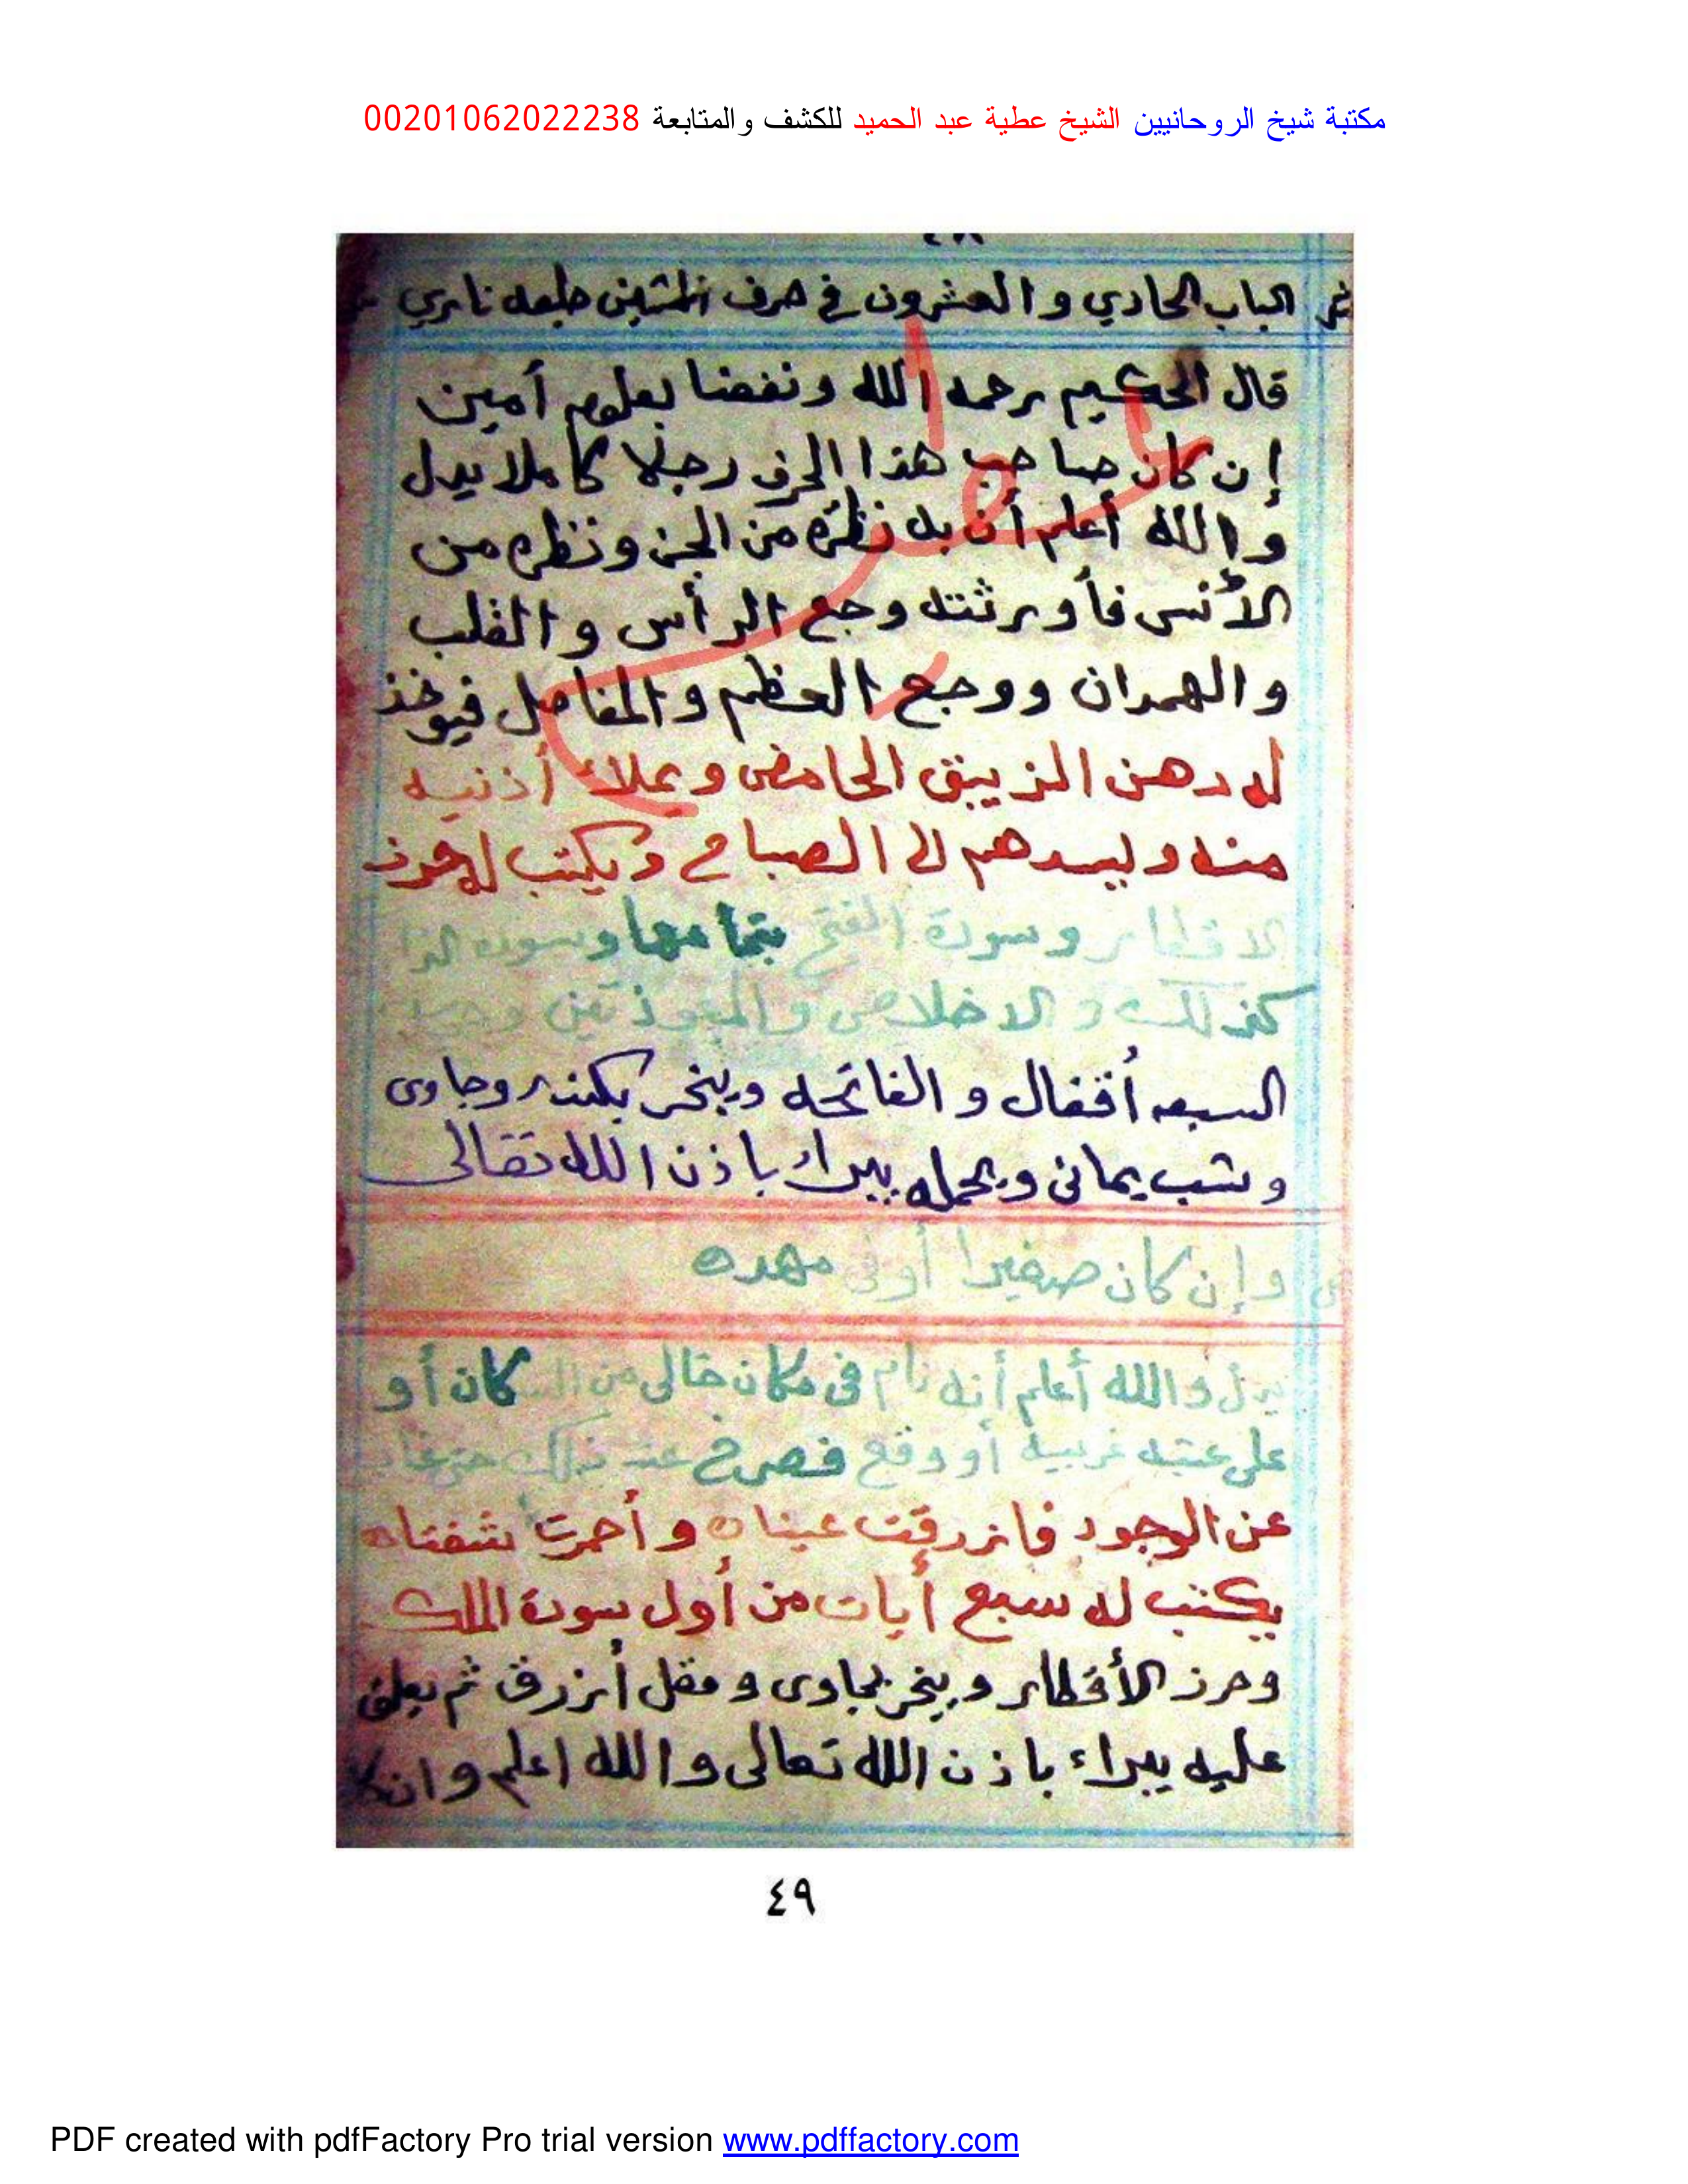 مكتبة شيخ الروحانيين الشيخ عطية عبد الحميد للكشف والمتابعة 00201062022238
٤٨
الباب الحادي والعشرون في حرف الشين طبعه ناري
قال الحكيم رحمه الله ونفعنا بعلومه أمين
إن كان صاحب هذا الحرف رجلا كاملا يدل
والله أعلم أن به نظره من الجن ونظره من
الأنس فأورثته وجع الرأس والقلب
والهمدان ووجع العظم والمفاصل فيوخذ
له دهن الزيبق الحامض ويملاء أذنيه
منه وليسدهم الى الصباح ويكتب له حرز
الاقطار وسورة الفتح بتمامها وسوره
كذلك والاخلاص والمعوذتين
السبعه أقفال والفاتحه ويبخر بكندر وجاوى
وشب يمانى ويحمله يبراء باذن الله تعالى
وإن كان صغيرا أوفى مهده
يدل والله أعلم أنه نام فى مكان خالى من السكان أو
على عتبه غريبه أو وقع فصرخ عند ذلك حتى غاب
عن الوجود فازرقت عيناه وأحمرت شفتاه
يكتب له سبع أيات من أول سورة الملك
وحرز الأقطار ويبخر بجاوى ومقل أزرق ثم يعلق
عليه يبراء باذن الله تعالى والله اعلم وان كا
٤٩
PDF created with pdfFactory Pro trial version www.pdffactory.com